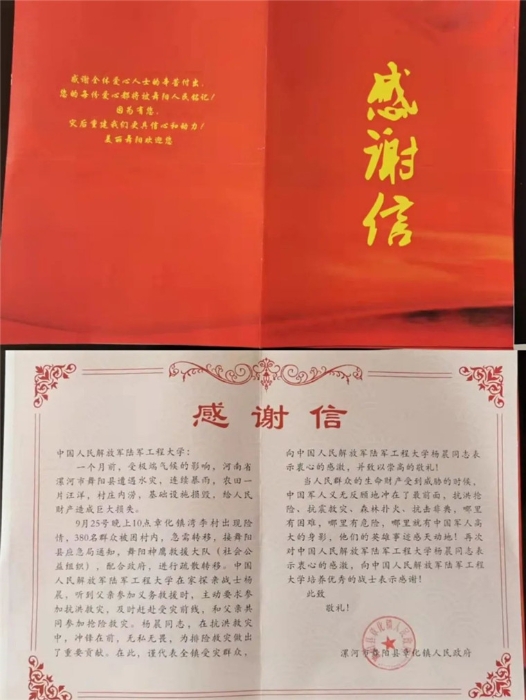 感谢全体爱心人士的辛苦付出,
您的每份爱心都将被舞阳人民铭记!
因为有您,
灾后重建我们更具信心和动力!
美丽舞阳欢迎您
感谢信
感谢信
中国人民解放军陆军工程大学:
一个月前,受极端气候的影响,河南省
漯河市舞阳县遭遇水灾,连续暴雨,农田一
片汪洋,村庄内涝,基础设施损毁,给人民
财产造成巨大损失。
9月25号晚上10点章化镇湾李村出现险
情,380名群众被困村内,急需转移,接舞阳
县应急局通知,舞阳神鹰救援大队(社会公
益组织),配合政府,进行疏散转移。中国
人民解放军陆军工程大学在家探亲战士杨
晨,听到父亲参加义务救援时,主动要求参
加抗洪救灾,及时赶赴受灾前线,和父亲共
同参加抢险救灾。杨晨同志,在抗洪救灾
中,冲锋在前,无私无畏,为排险救灾做出
了重要贡献。在此,谨代表全镇受灾群众,
向中国人民解放军陆军工程大学杨晨同志表
示衷心的感激,并致以崇高的敬礼!
当人民群众的生命财产受到威胁的时候,
中国军人义无反顾地冲在了最前面,抗洪抢
险、抗震救灾、森林扑火、抗击非典,哪里
有困难,哪里有危险,哪里就有中国军人高
大的身影,他们的英雄事迹感天动地!再次
对中国人民解放军陆军工程大学杨晨同志表
示衷心的感激,向中国人民解放军陆军工程
大学培养优秀的战士表示感谢!
此致
敬礼!
漯河市舞阳县章化镇人民政府